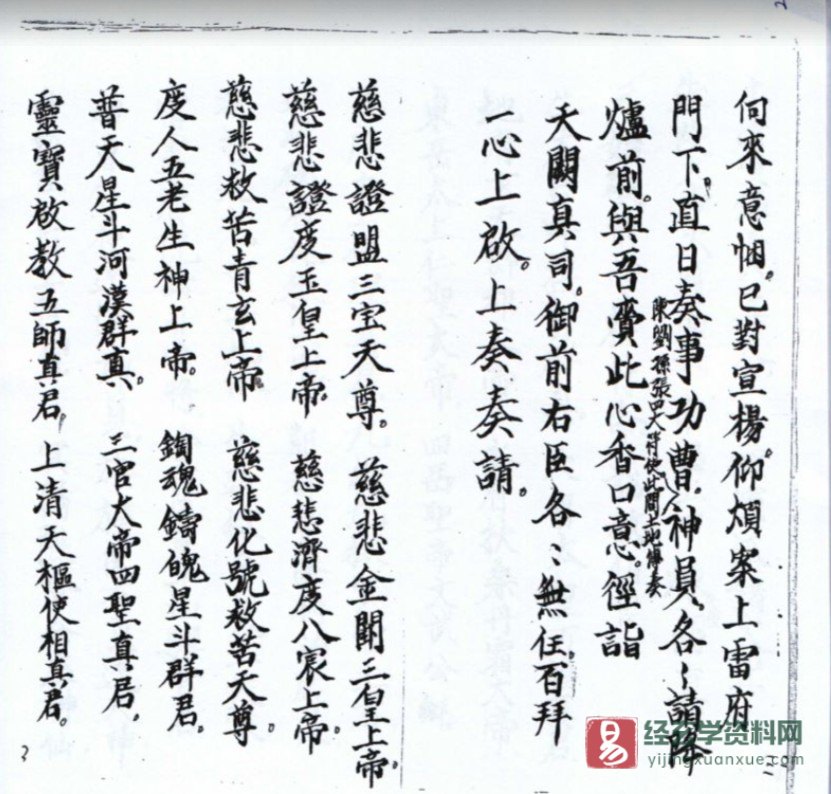 伺來意悃。已對宣楊。仰煩案上雷府
門下。直日奏事功曹。神員各〻請降
陳劉孫張四大將使此間土地傳奏
爐前。與吾賫此心香口意。徑詣
天闕真司。御前右臣各〻無任百拜
一心上啟。上奏奏請。
慈悲證盟三宝天尊。 慈悲金闕三皇上帝。
慈悲證度玉皇上帝。 慈悲濟度八宸上帝。
慈悲救苦青玄上帝。 慈悲化號救苦天尊。
度人五老生神上帝。 鍧魂鑄魄星斗群君。
普天星斗河漢群真。 三官大帝四聖真君。
靈寶啟教五師真君。 上清天樞使相真君。
经玄学资料网
yijingxuanxue.com
易